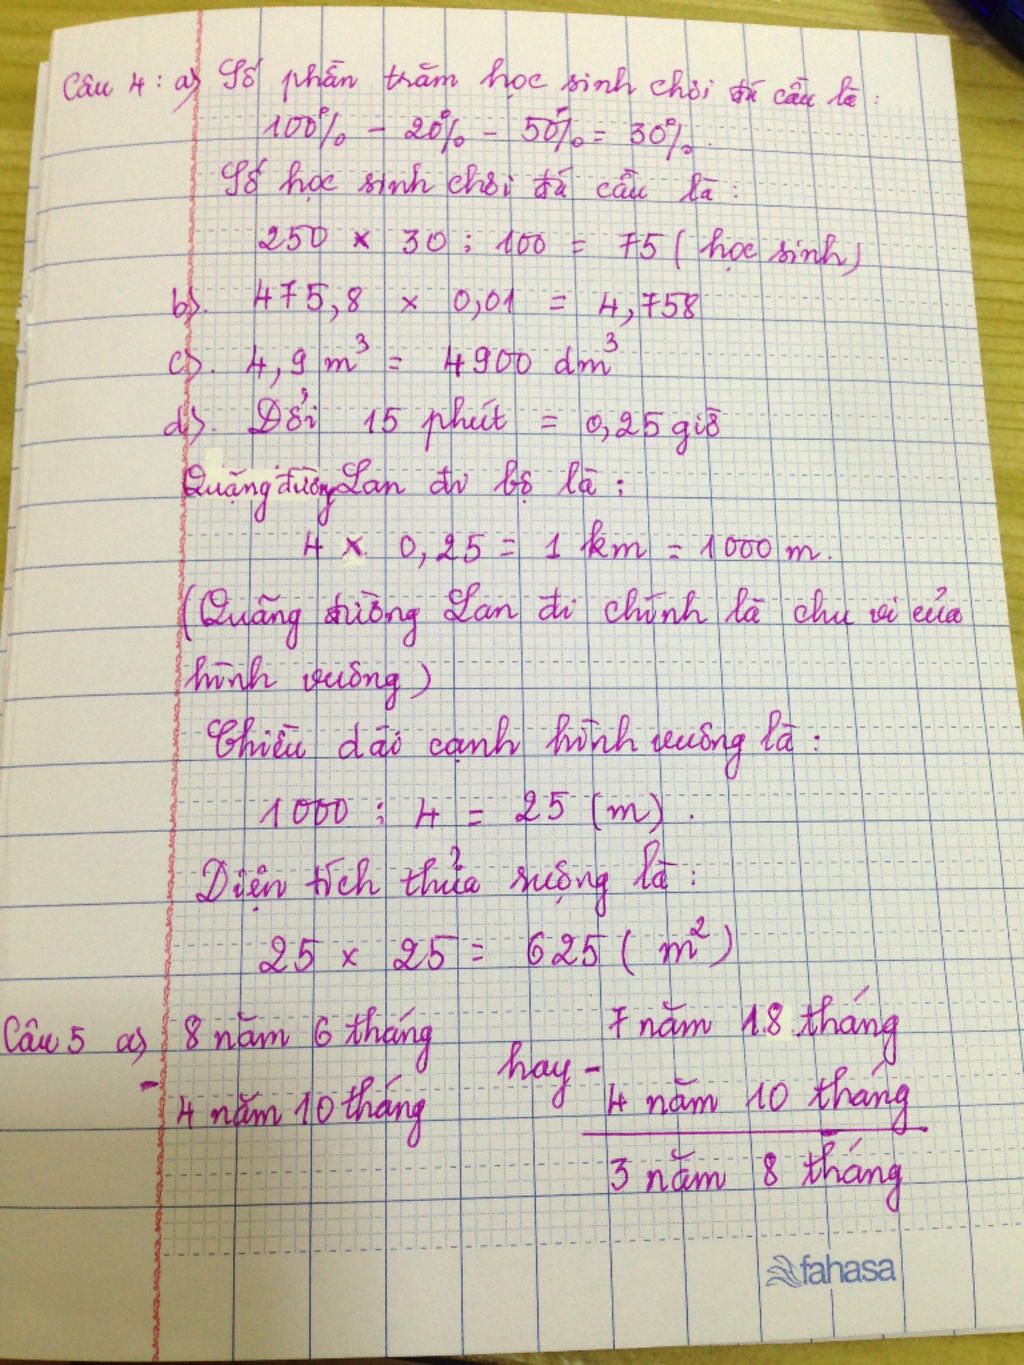 Câu 4: a) Số phần trăm học sinh chơi đá cầu là:
100% - 20% - 50% = 30%.
Số học sinh chơi đá cầu là:
250 × 30 : 100 = 75 (học sinh)
b). 475,8 × 0,01 = 4,758
c). 4,9 m³ = 4900 dm³
d). Đổi 15 phút = 0,25 giờ
Quặng đường Lan đi bộ là:
4 × 0,25 = 1 km = 1000 m.
(Quãng đường Lan đi chính là chu vi của
hình vuông)
Chiều dài cạnh hình vuông là:
1000 : 4 = 25 (m).
Diện tích thửa ruộng là:
25 × 25 = 625 (m²)
Câu 5 a) 8 năm 6 tháng hay 7 năm 18 tháng
- 4 năm 10 tháng - 4 năm 10 tháng
3 năm 8 tháng
fahasa